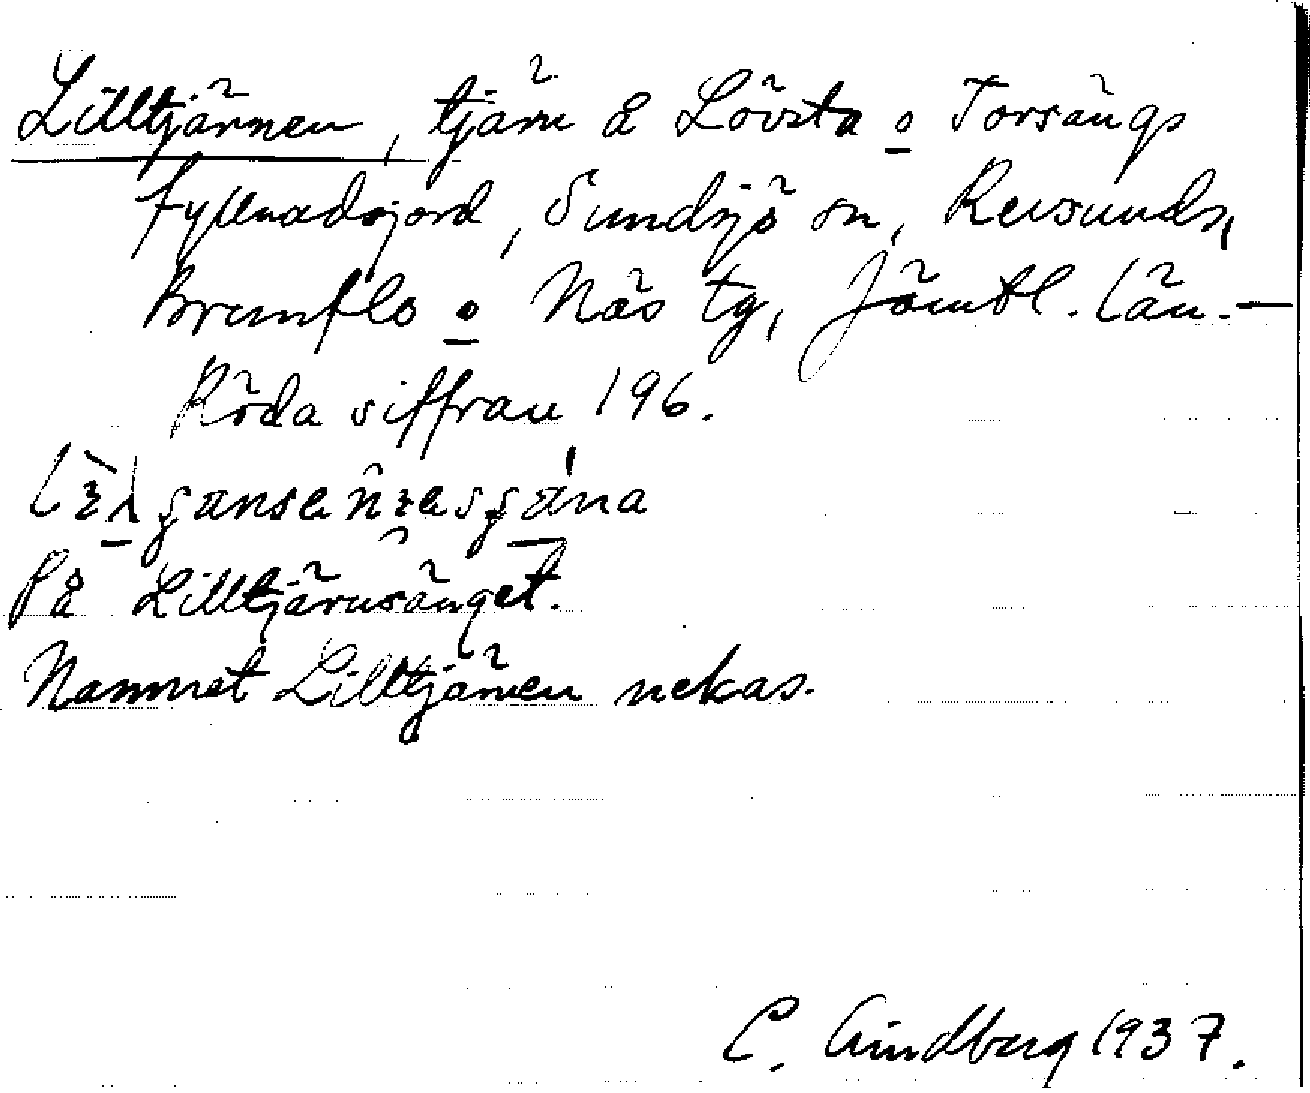 Lilltjärnen, tjärn å Lövsta o Torsängs
fyllnadsjord, Sundsjö sn, Revsunds,
Brunflo o Näs tg, Jämtl. län. —
Röda siffran 196.
På Lilltjärnsänget.
Namnet Lilltjärnen nekas.
C. Lindberg 1937.